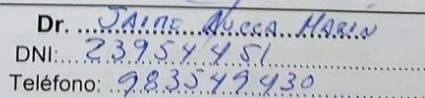 Dr. JAIME AUCCA MARIN
DNI: 23954451
Teléfono: 983549430